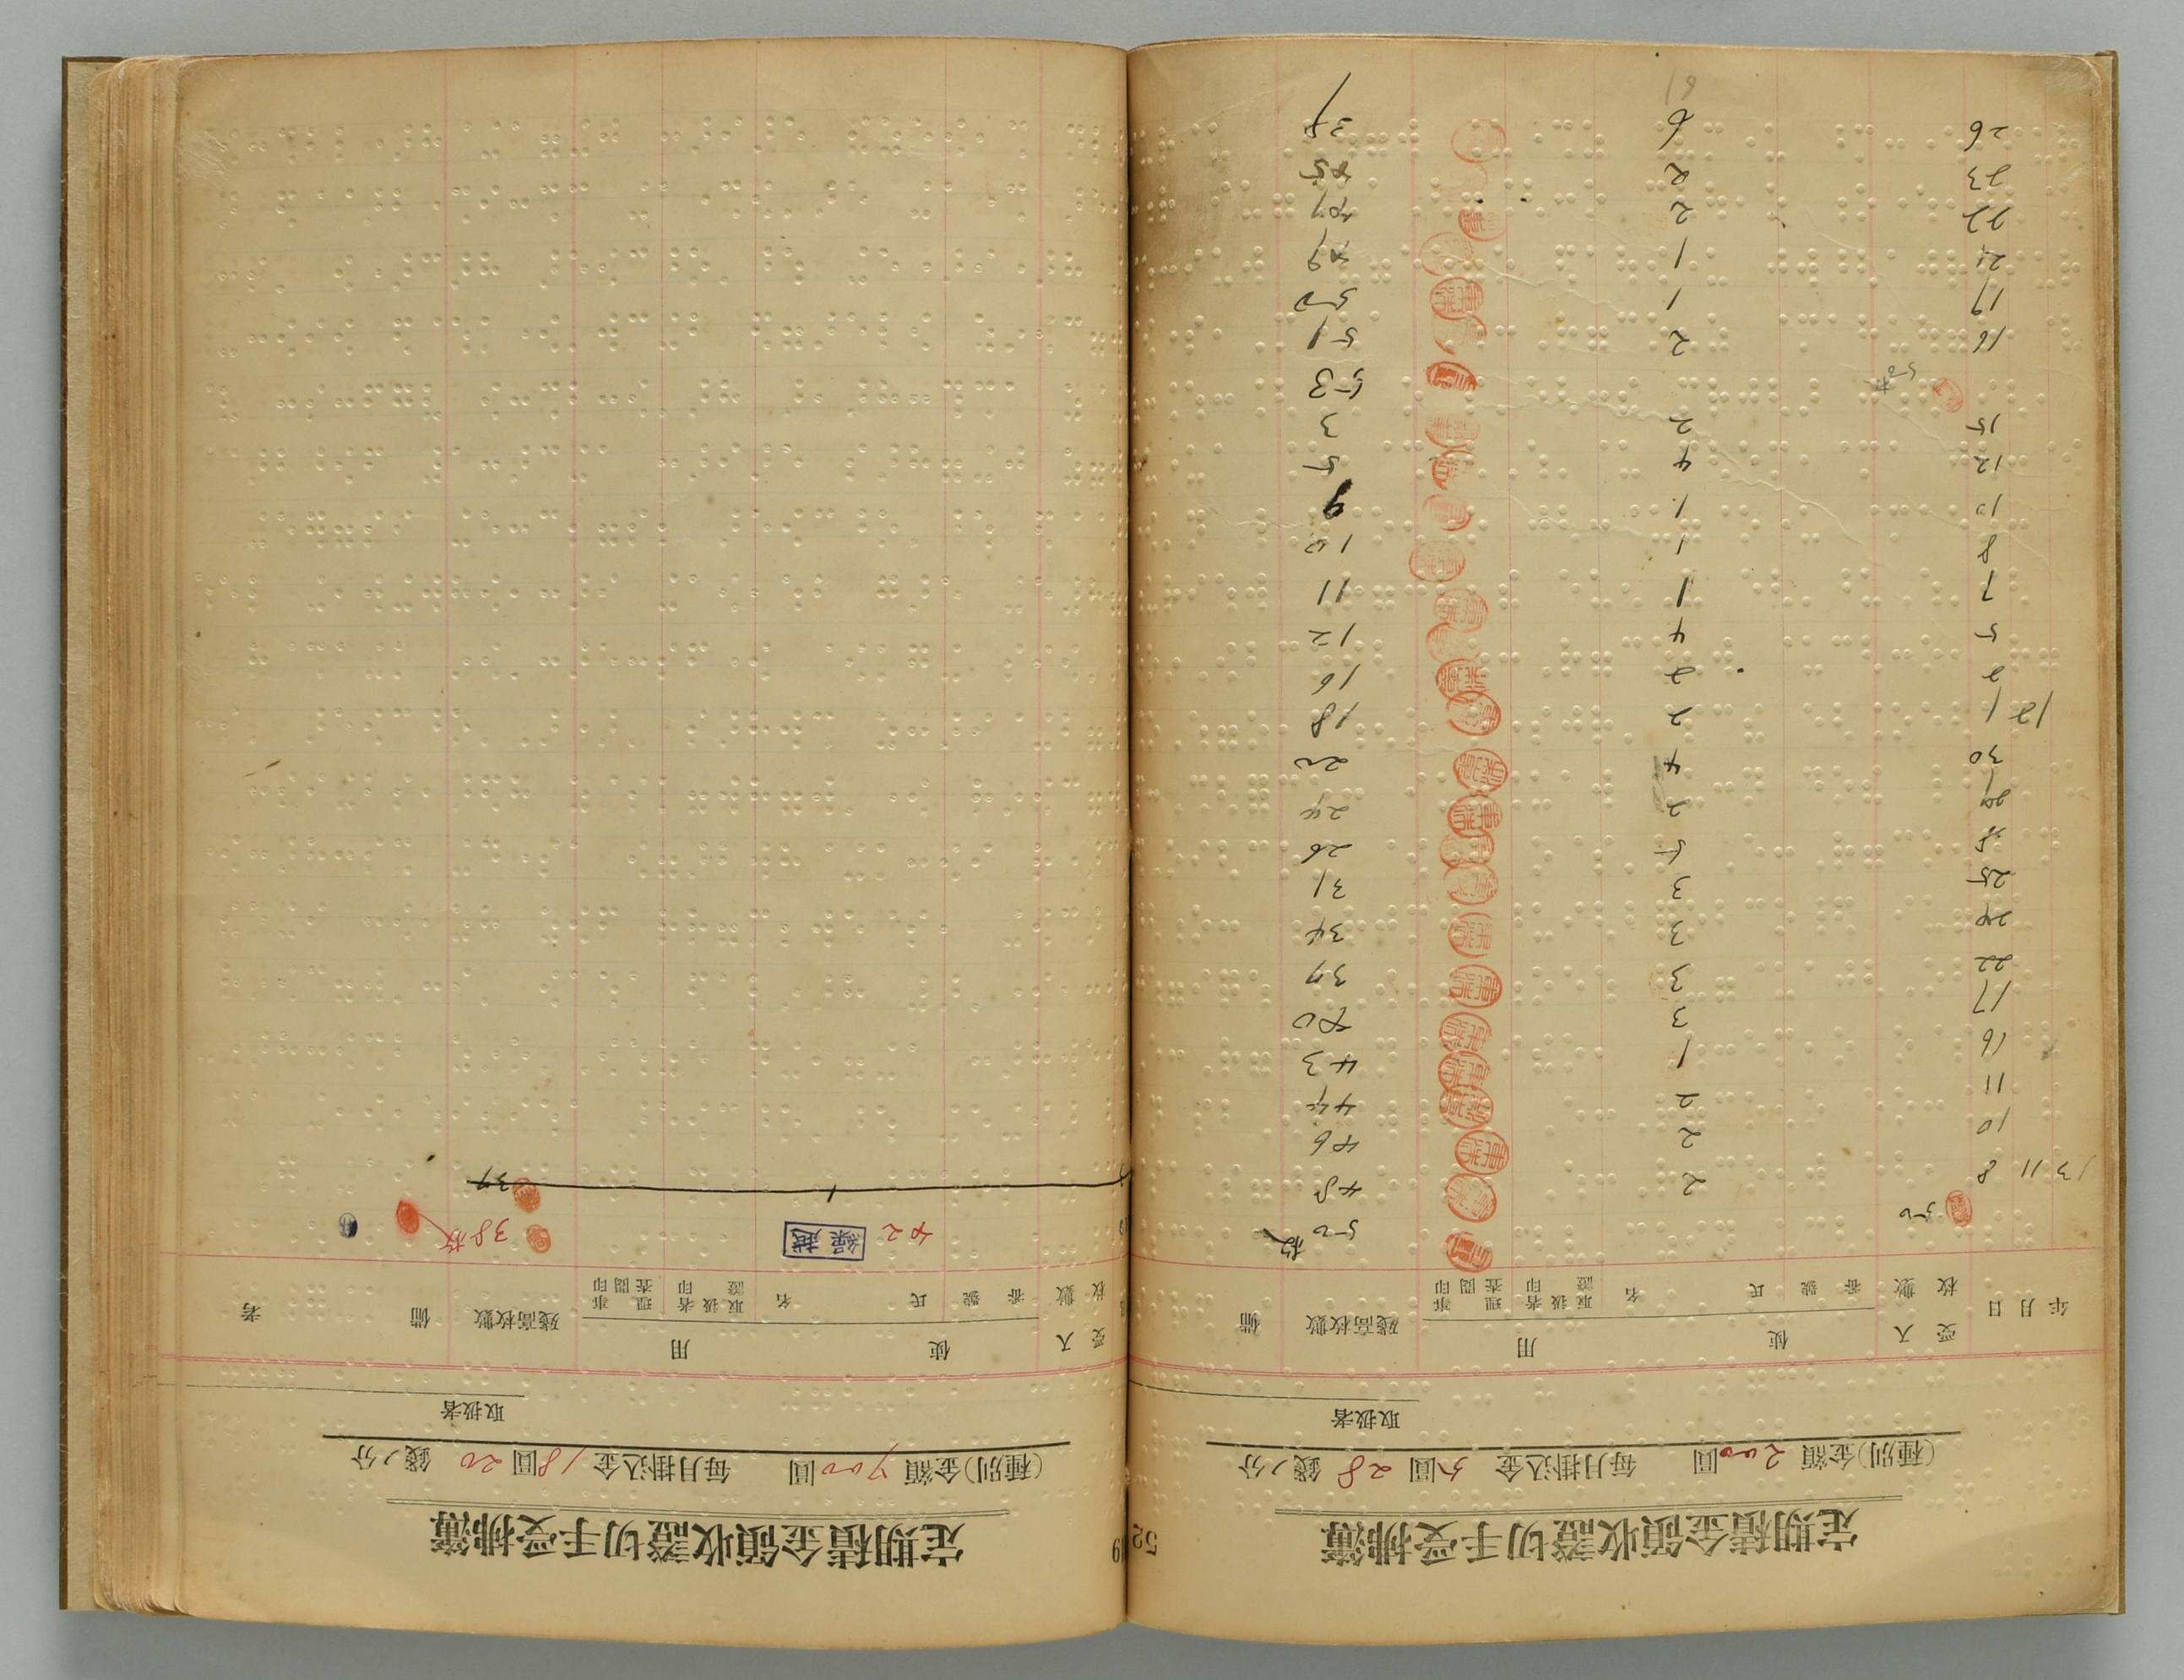 定期積金領收證切手受拂簿
(種別)金額 200圓 毎月掛込金 5圓28錢ノ分
取扱者
年 月 日 受入 枚數 使用 番號 氏名 取扱者證印 理事査閲印 殘高枚數 備
50 50枚
13 11 8 2 48
10 2 46
11 2 44
16 1 43
17 3 40
22 3 37
24 3 34
25 3 31
28 5 26
29 2 24
30 4 20
12 1 2 18
2 2 16
5 4 12
7 1 11
8 1 10
10 1 9
12 4 5
15 2 3
50 53
16 2 51
19 1 50
21 1 49
22 2 47
23 2 45
26 6
定期積金領收證切手受拂簿
(種別)金額 700圓 毎月掛込金 18圓20錢ノ分
取扱者
受入 枚數 使用 番號 氏名 取扱者證印 理事査閲印 殘高枚數 備考
42 繰越 38枚
1 37